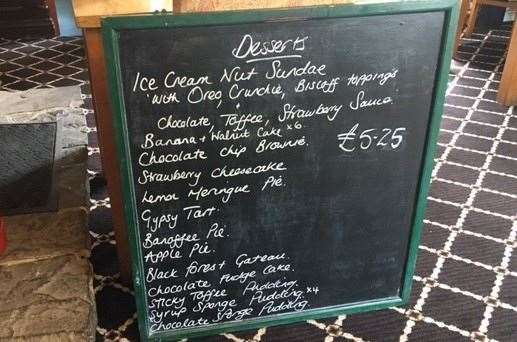 Desserts
Ice Cream Nut Sundae
with Oreo, Crunchie, Biscoff toppings
+
Chocolate, Toffee, Strawberry Sauce
Banana + Walnut Cake x6.
Chocolate Chip Brownie.
£5.25
Strawberry Cheesecake
Lemon Meringue Pie.
Gypsy Tart.
Banoffee Pie.
Apple Pie.
Black Forest Gateau.
Chocolate Fudge Cake.
Sticky Toffee Pudding.
Syrup Sponge Pudding. x4
Chocolate Sponge Pudding.